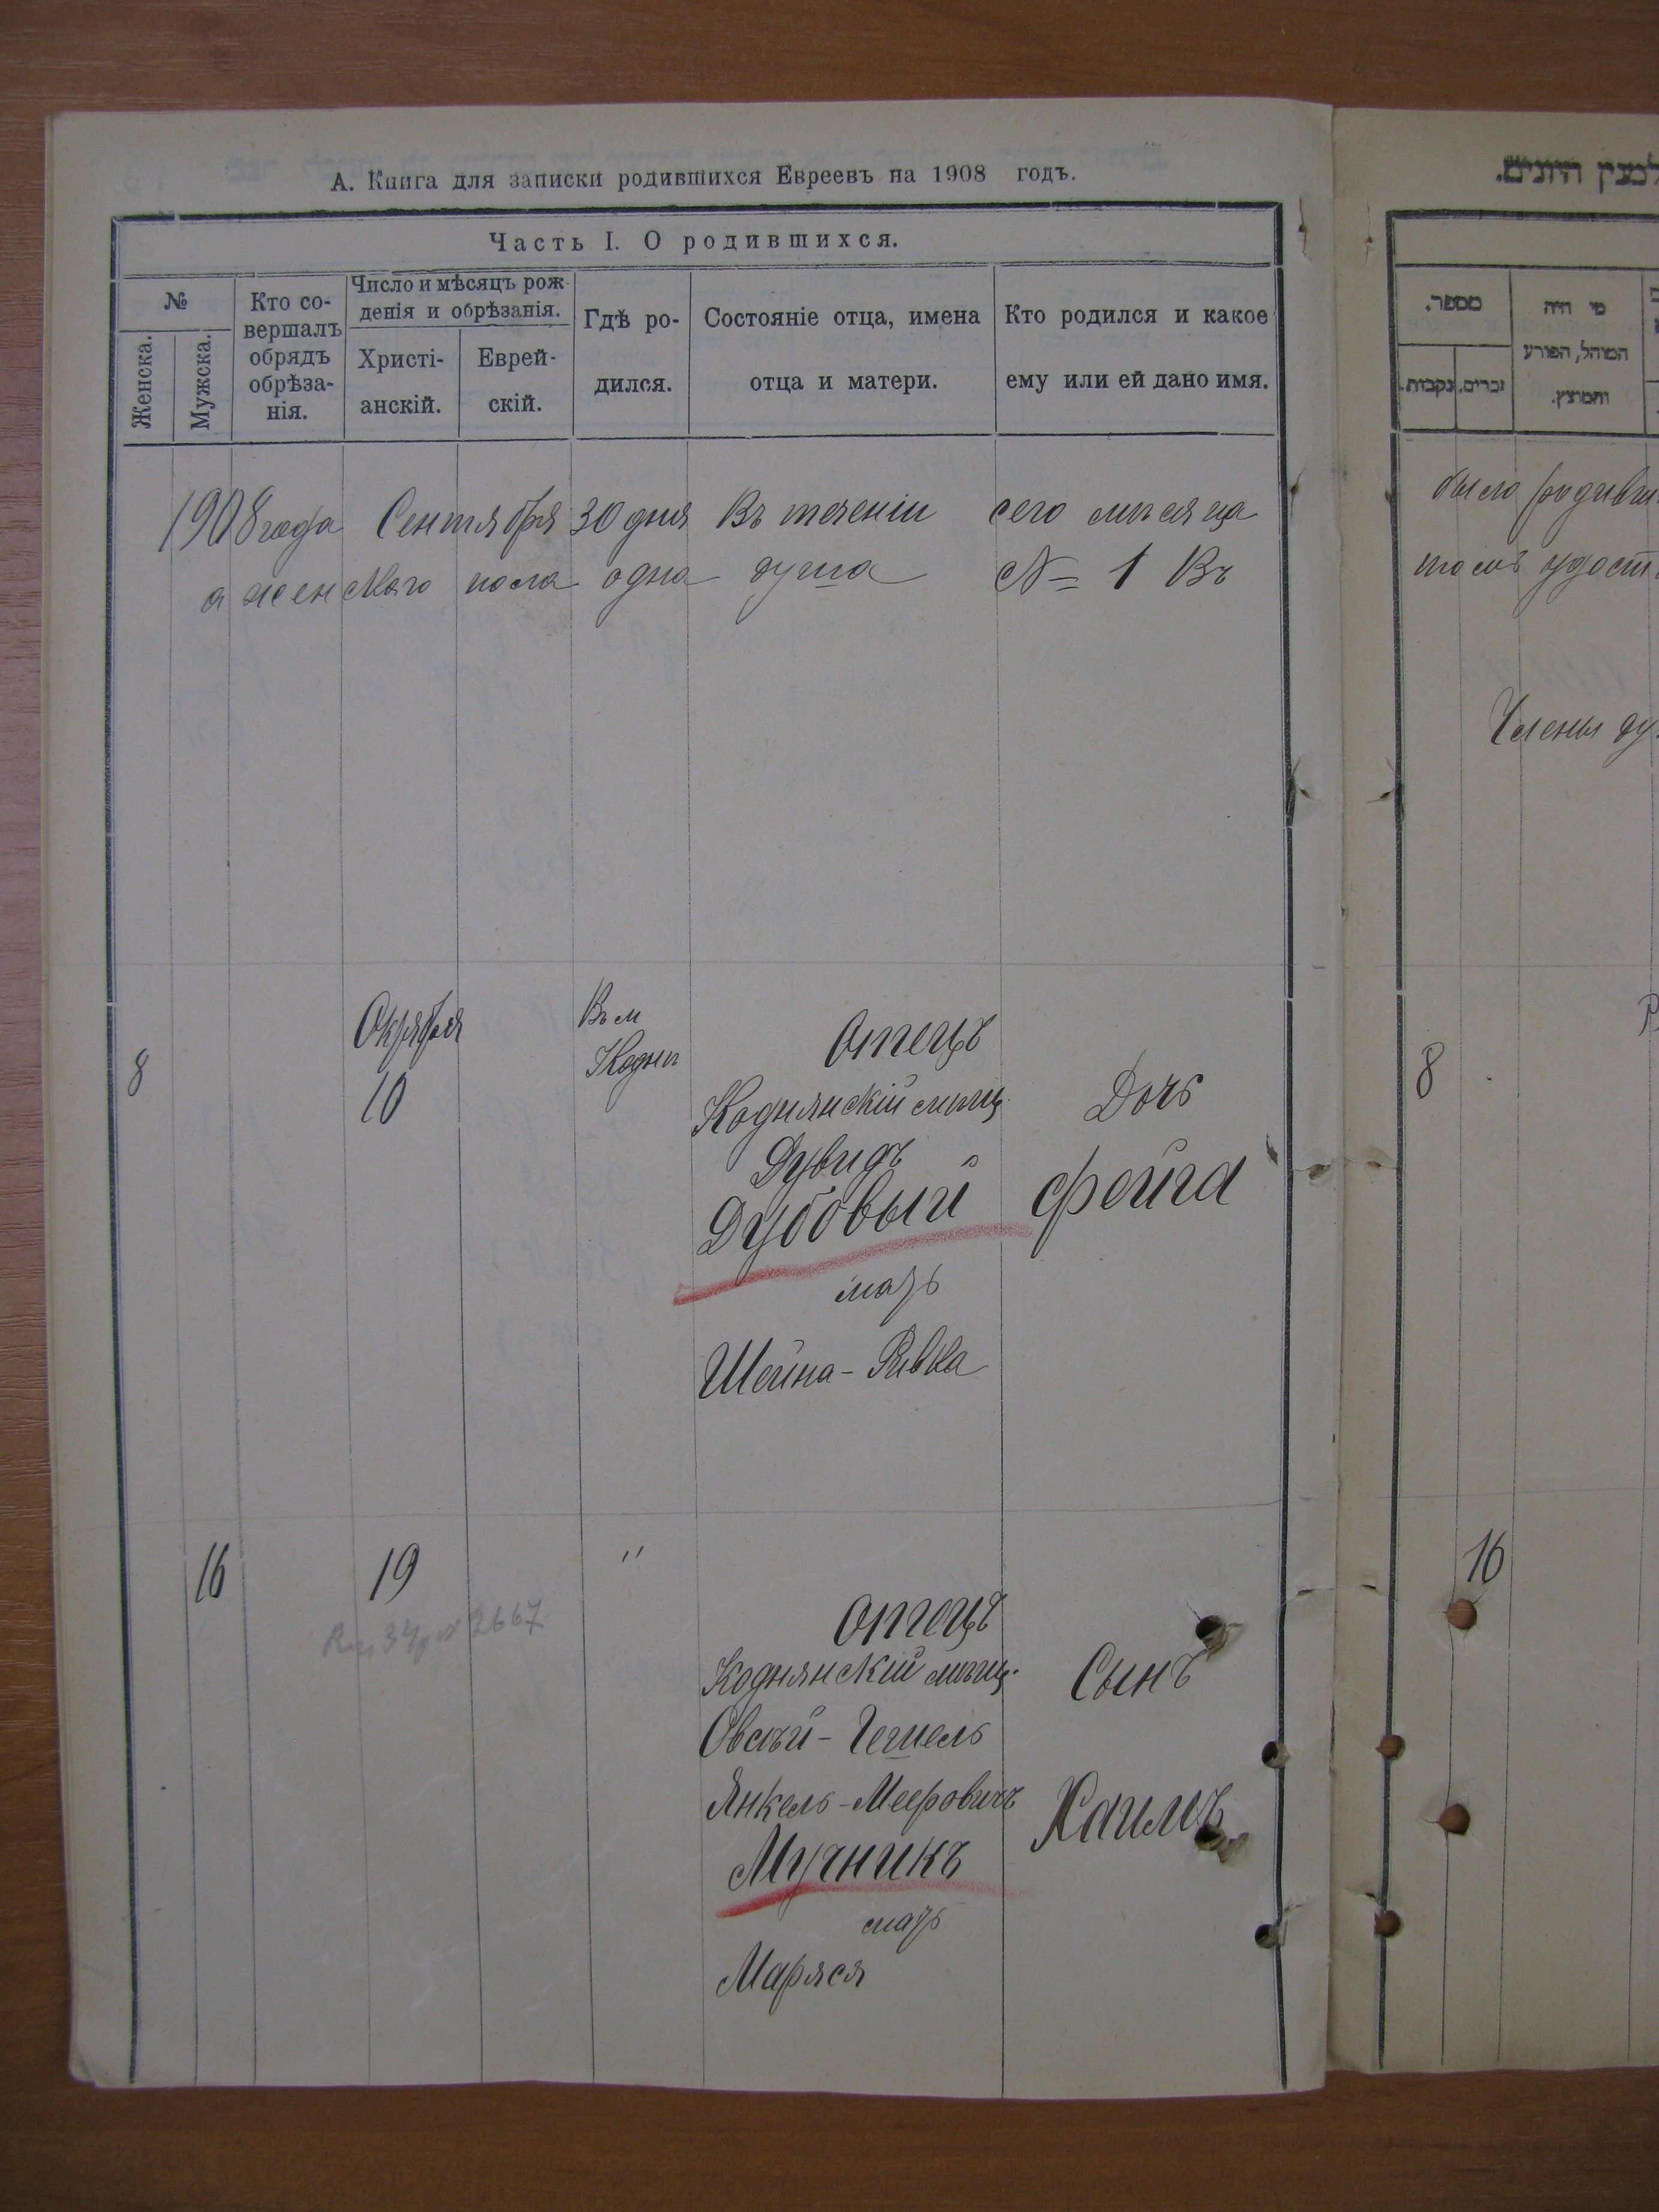 А. Книга для записки родившихся Евреевъ на 1908 годъ.
Часть I. О родившихся.
№
Женска.
Мужска.
Кто со-
вершалъ
обрядъ
обрѣза-
нія.
Число и мѣсяцъ рож-
денія и обрѣзанія.
Христі-
анскій.
Еврей-
скій.
Гдѣ ро-
дился.
Состояніе отца, имена
отца и матери.
Кто родился и какое
ему или ей дано имя.
1908 года Сентября 30 дня Въ теченіи сего мѣсяца
а женскаго пола одна душа № 1 Въ
8
Октября
10
Въ м
Кодни
Отецъ
Коднянскій мѣщ.
Дувидъ
Дубовый
мать
Шейна-Ривка
Дочь
Фейга
16
19
"
2667
Отецъ
Коднянскій мѣщ.
Овсѣй-Гешель
Янкель-Мееровичъ
Мучникъ
мать
Маряся
Сынъ
Хаимъ
מספר.
זכרים.
נקבות.
מי היה
המוהל, הפורע
והמוצץ.
было родивш
томъ удост
Члены ду
8
16